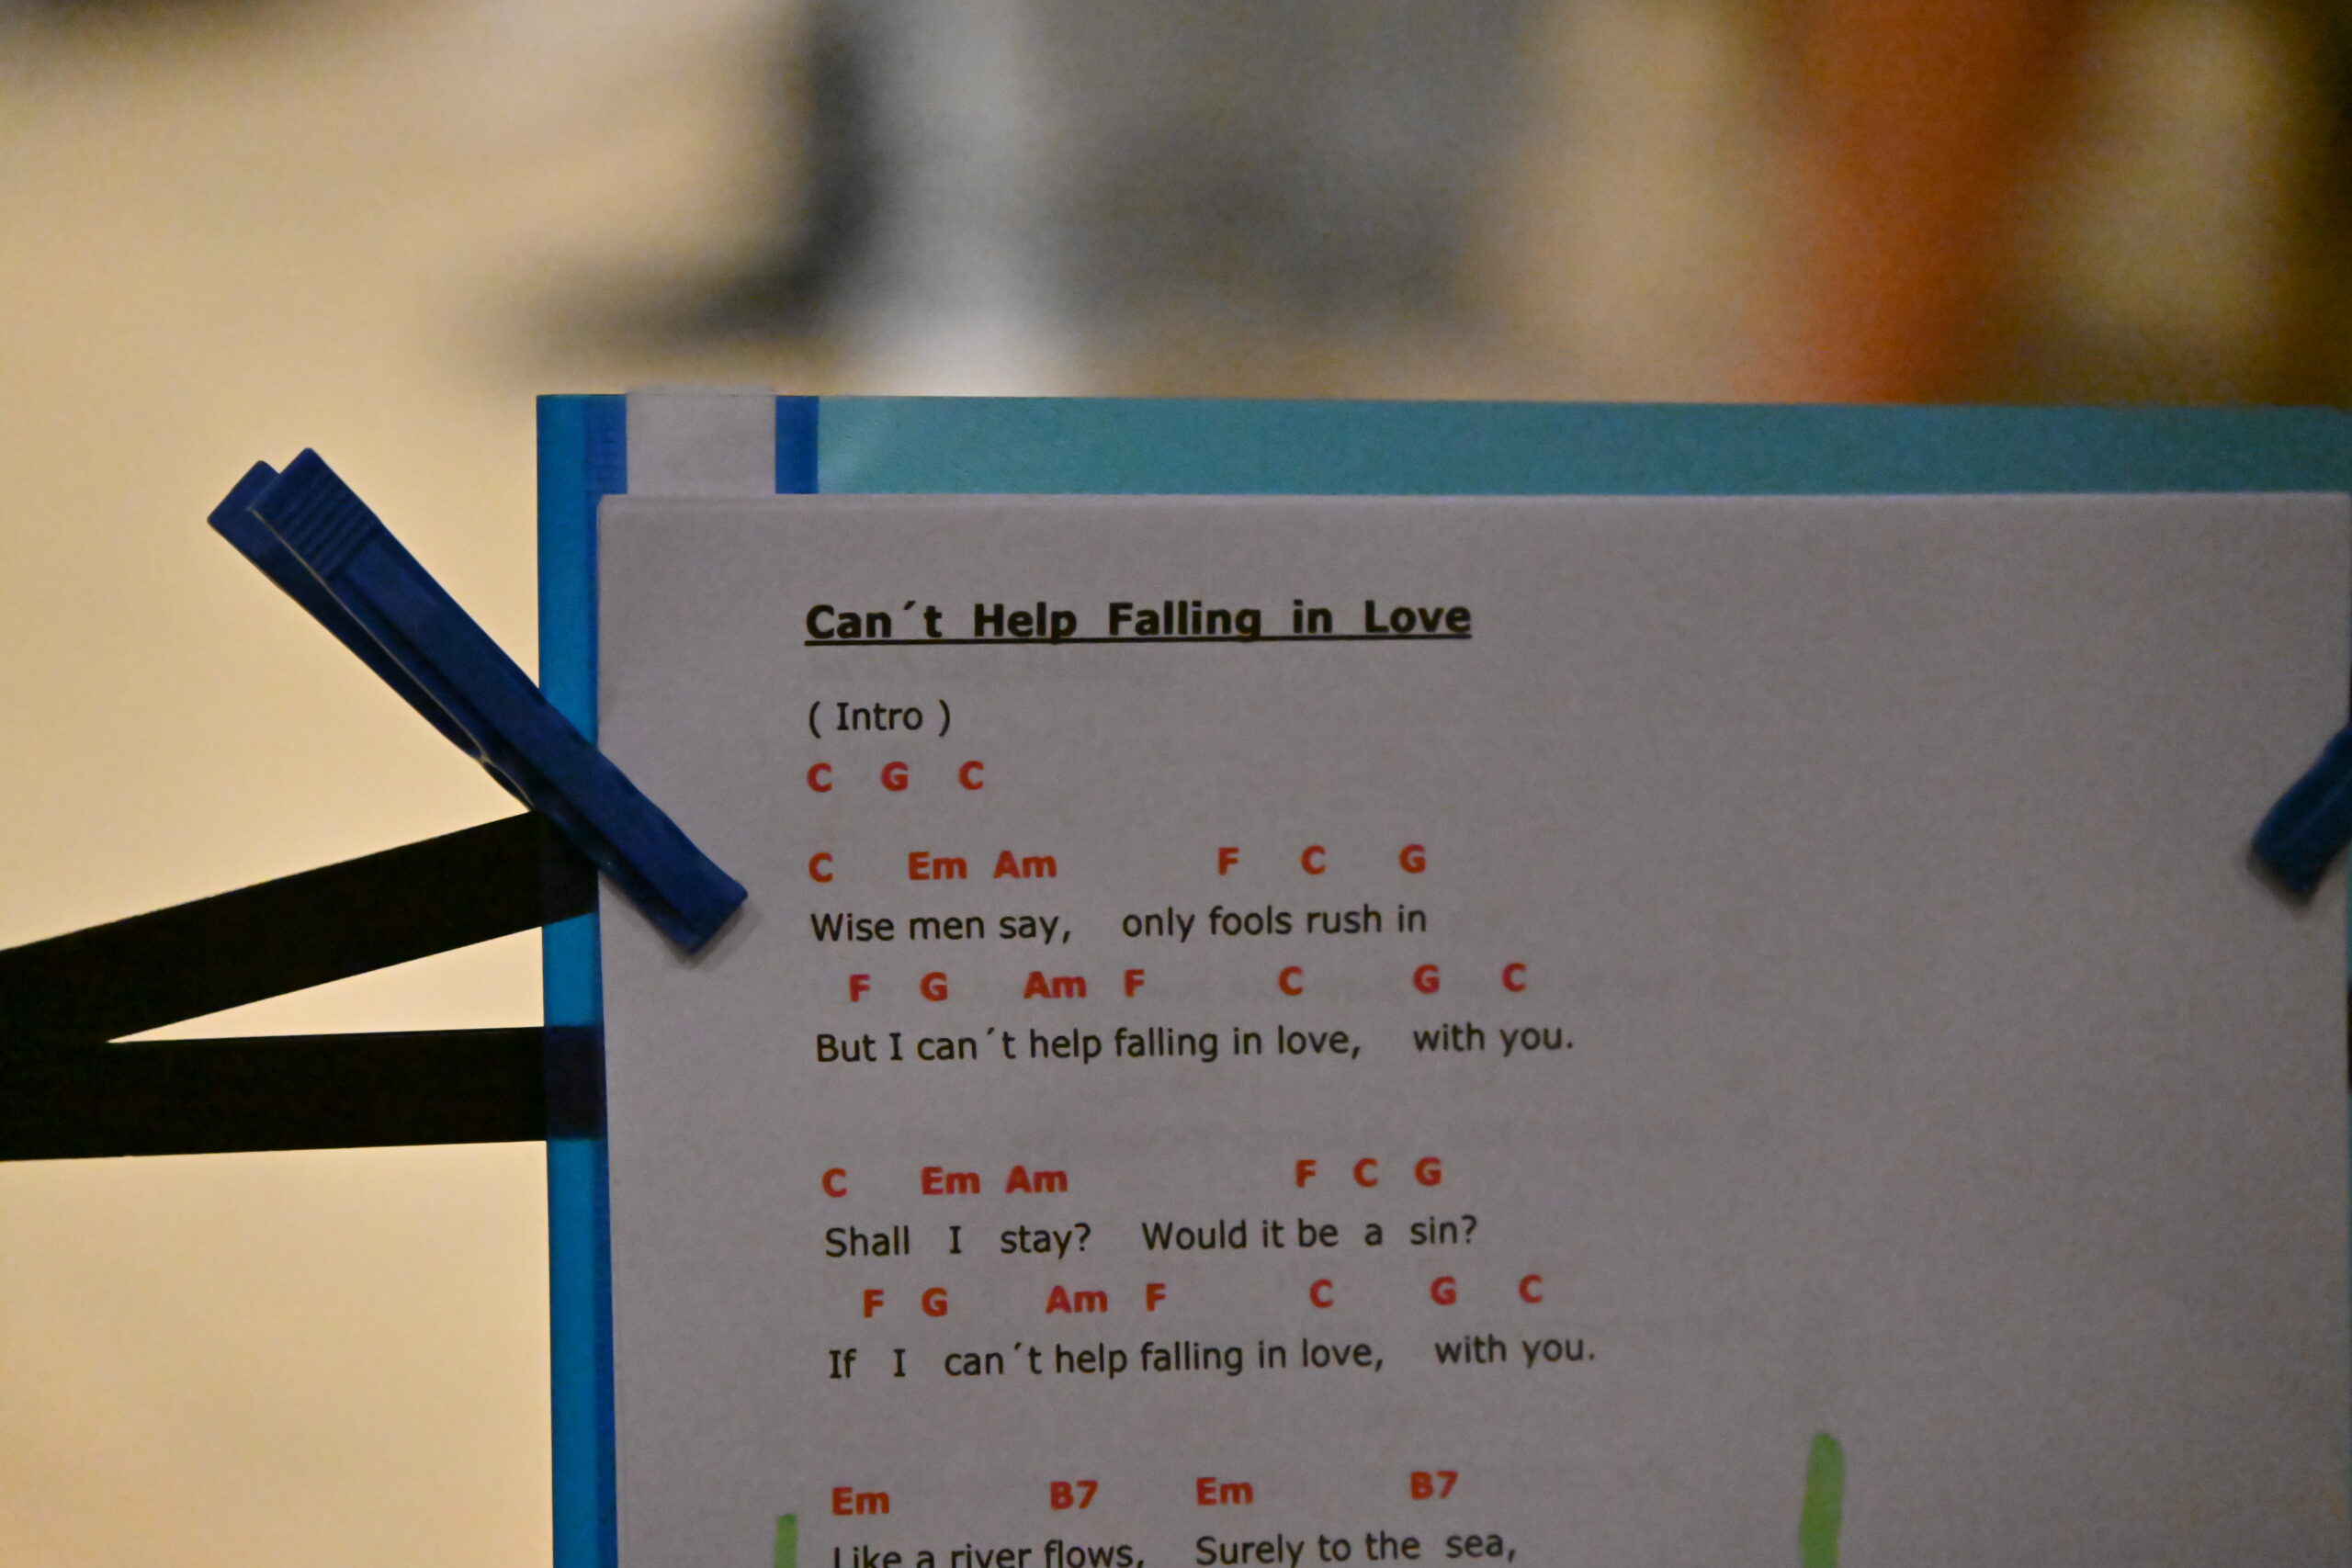 Can´t Help Falling in Love
( Intro )
C G C
C Em Am F C G
Wise men say, only fools rush in
F G Am F C G C
But I can´t help falling in love, with you.
C Em Am F C G
Shall I stay? Would it be a sin?
F G Am F C G C
If I can´t help falling in love, with you.
Em B7 Em B7
Like a river flows, Surely to the sea,